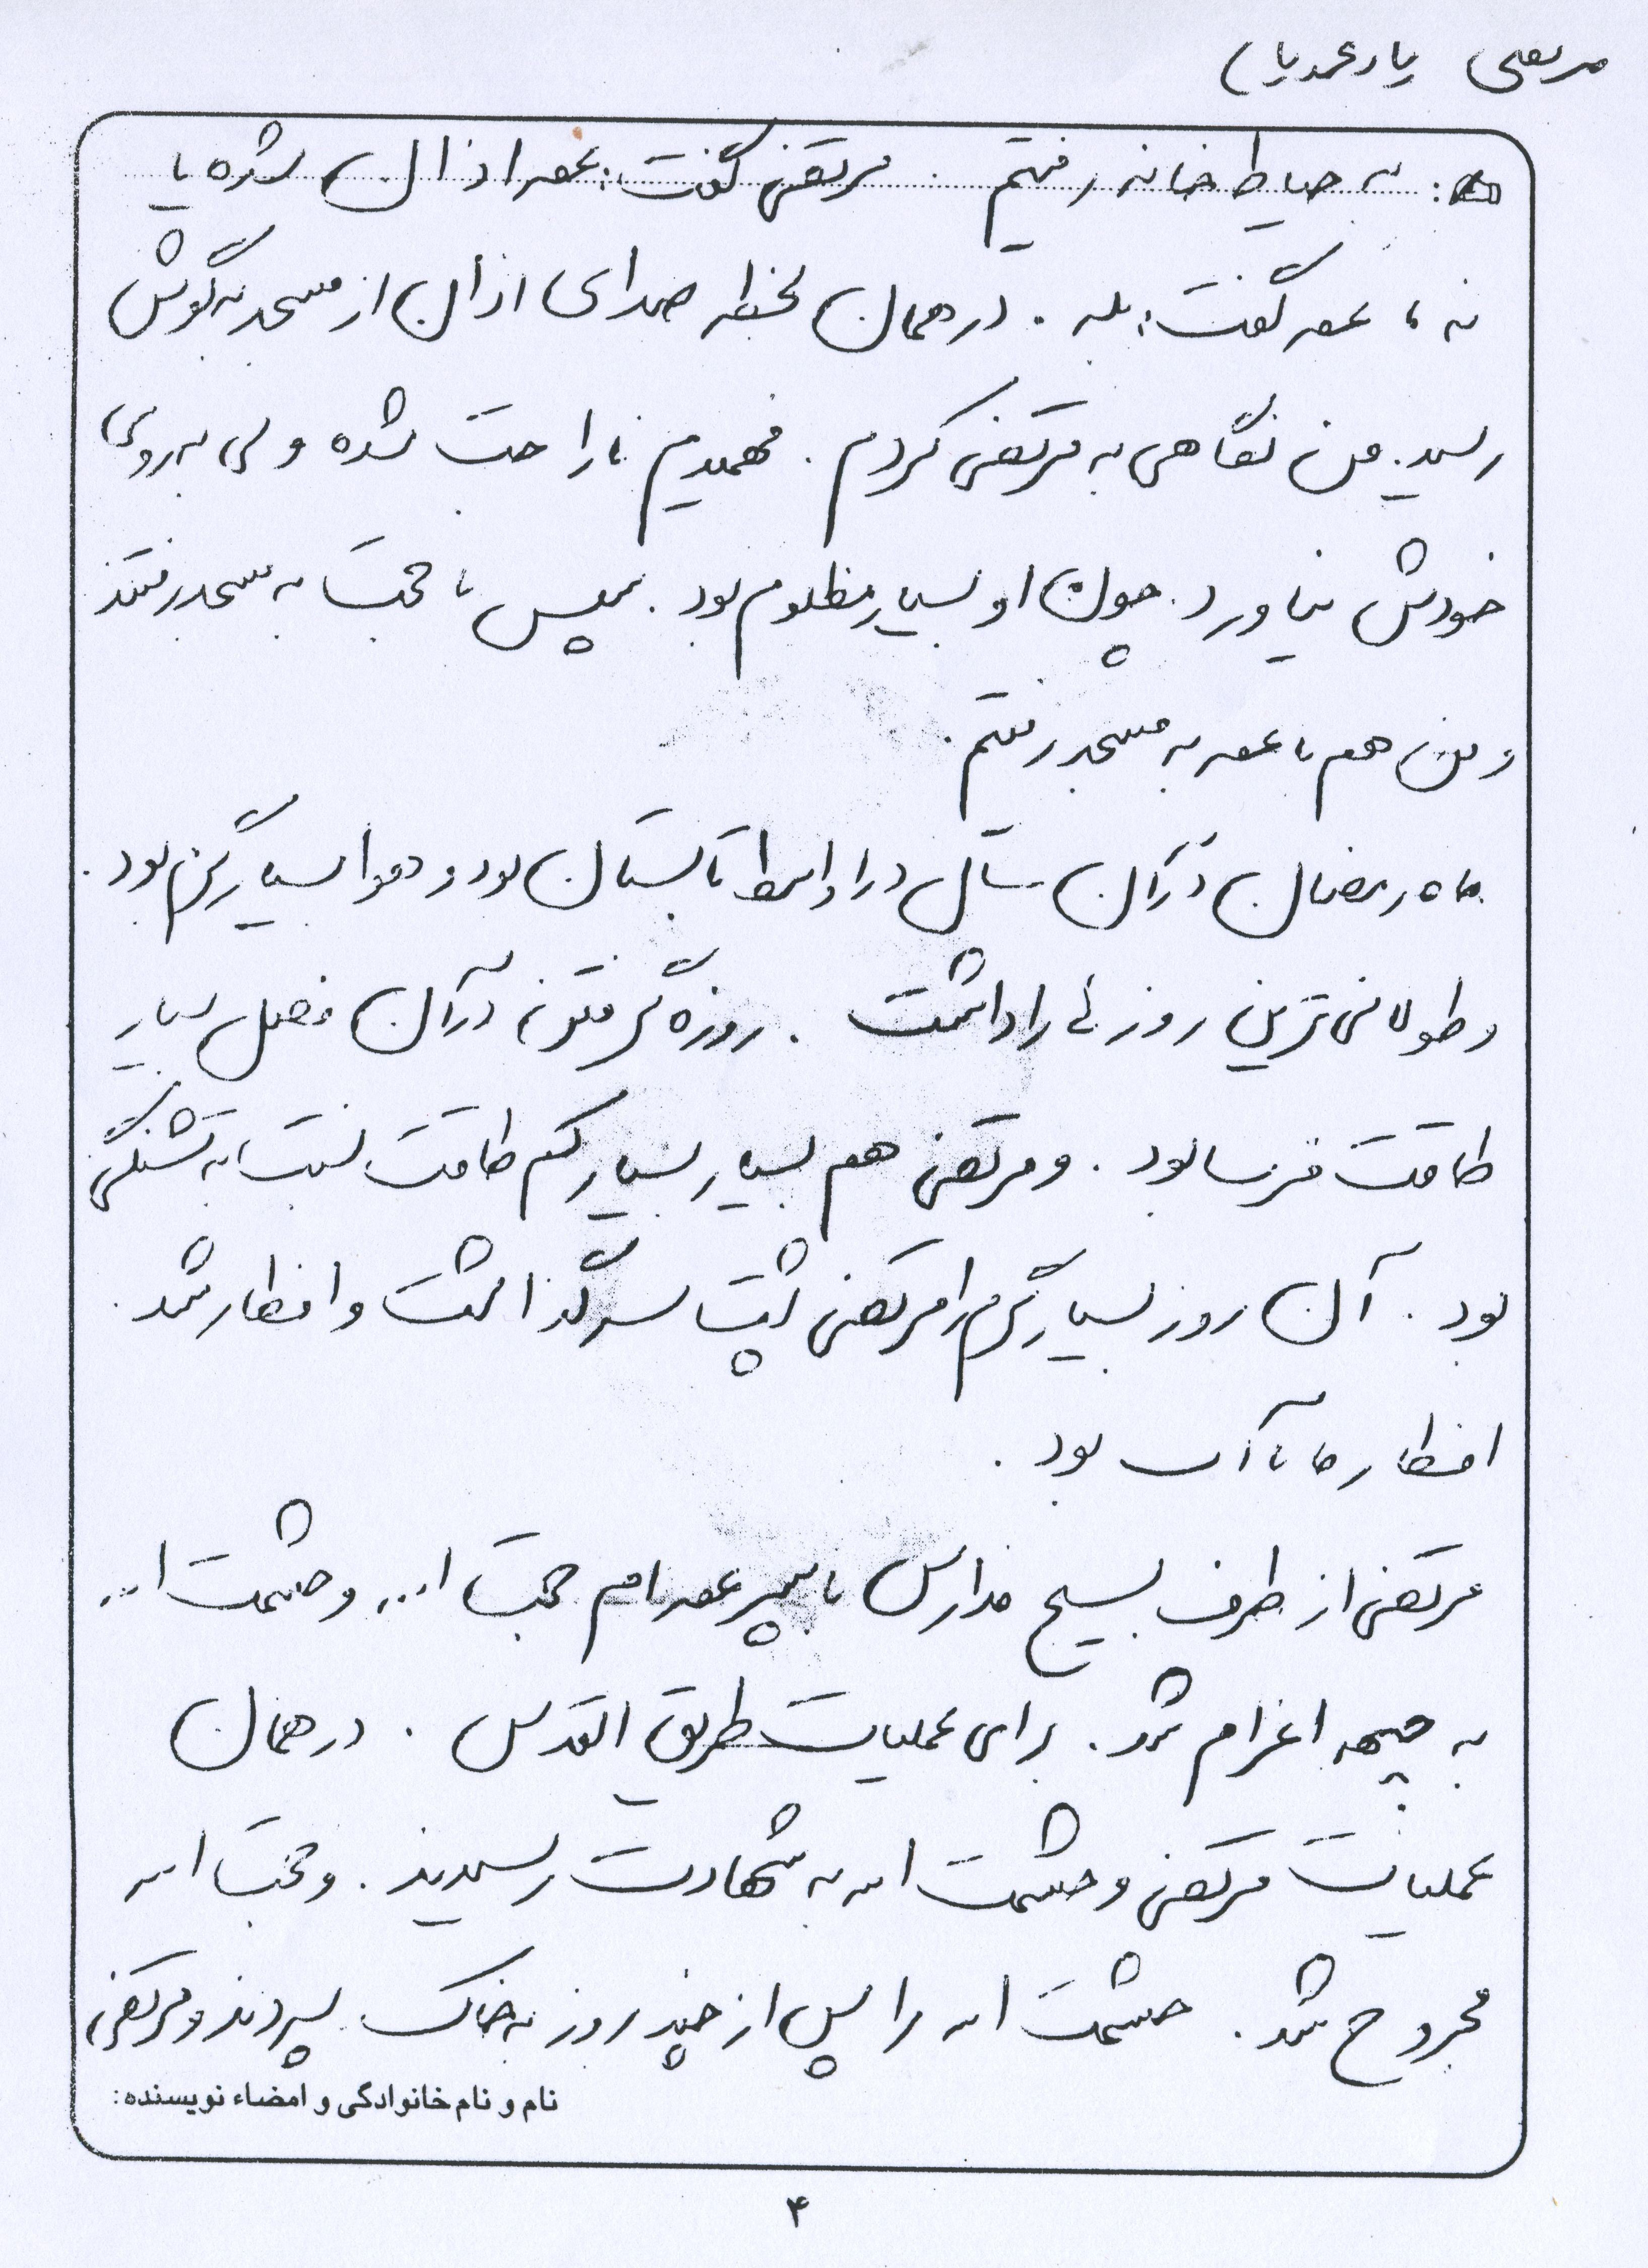 مرتضی یارمحمدیان
به حیاط خانه رفتیم. مرتضی گفت: عمه اذان شده یا
نه، عمه گفت: بله. در همان لحظه صدای اذان از مسجد به گوش
رسید. من نگاهی به مرتضی کردم. فهمیدم ناراحت شده ولی به روی
خودش نیاورد. چون او بسیار مظلوم بود. سپس با حجت به مسجد رفتند
و من هم با عمه به مسجد رفتم.
ماه رمضان در آن سال در اواسط تابستان بود و هوا بسیار گرم بود.
و طولانی ترین روز ها را داشت. روزه گرفتن در آن فصل بسیار
طاقت فرسا بود. و مرتضی هم بسیار بسیار کم طاقت نسبت به تشنگی
بود. آن روز بسیار گرم را مرتضی پشت سر گذاشت و افطار شد.
افطار ما با آب بود.
مرتضی از طرف بسیج مدارس با پسر عمه ام حجت ا... و حشمت ا...
به جبهه اعزام شد. برای عملیات طریق القدس. در همان
عملیات مرتضی و حشمت اله به شهادت رسیدند. و حجت اله
مجروح شد. حشمت اله را پس از چند روز به خاک سپردند و مرتضی
نام و نام خانوادگی و امضاء نویسنده:
۴